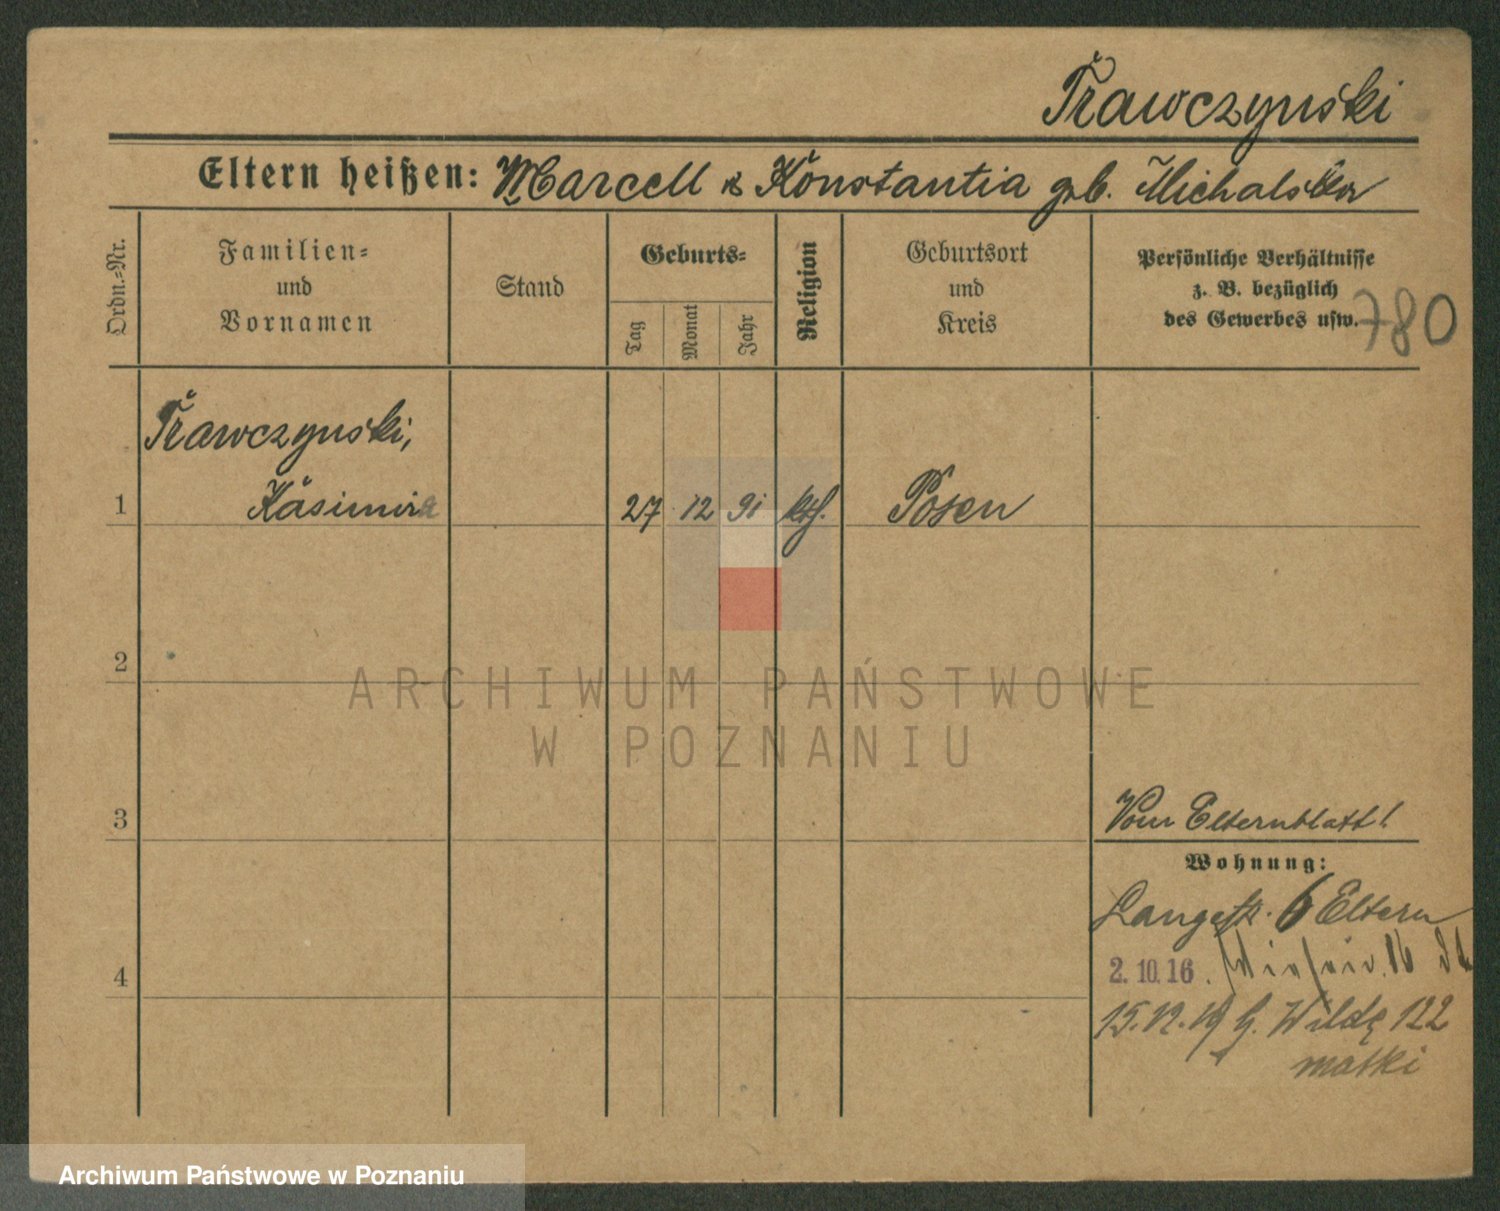 Trawczynski
Eltern heißen: Marcell & Konstantia geb. Michalska
Ordn.-Nr.
Familien-
und
Vornamen
Stand
Geburts-
Tag
Monat
Jahr
Religion
Geburtsort
und
Kreis
Persönliche Verhältnisse
z. B. bezüglich
des Gewerbes usw.
780
Trawczynski,
1 Kasimira 27 12 91 kth. Posen
2
ARCHIWUM PAŃSTWOWE
W POZNANIU
3
Vom Elternblatt!
Wohnung:
Langestr. 6 Eltern
4
2.10.16.
15.12.19 G. Wildę 122
matki
Archiwum Państwowe w Poznaniu